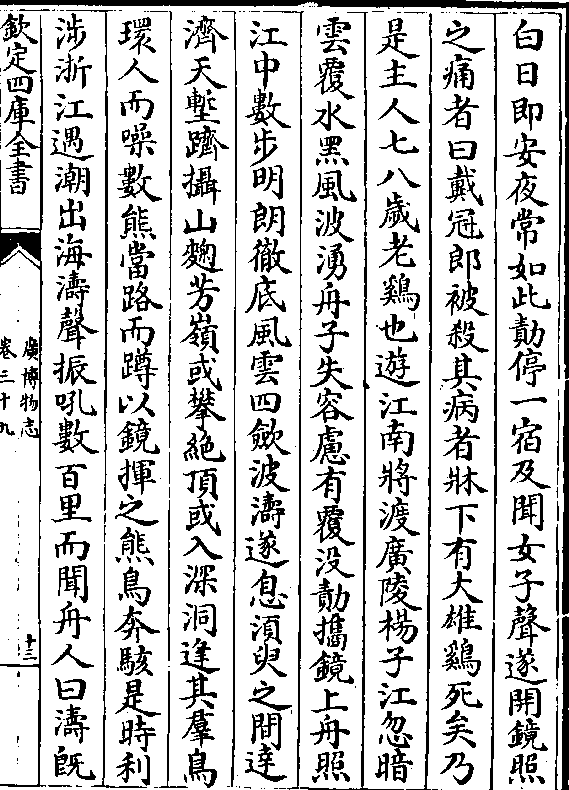 白日即安夜常如此勣停一宿及聞女子聲遂開鏡照
之痛者曰戴冠郎被殺其病者牀下有大雄鷄死矣乃
是主人七八歲老鷄也遊江南將渡廣陵楊子江忽暗
雲覆水黑風波湧舟子失容慮有覆没勣攜鏡上舟照
江中數步明朗徹底風雲四斂波濤遂息須臾之間達
濟天塹躋攝山麴芳嶺或攀絶頂或入深洞逢其羣鳥
環人而噪數熊當路而蹲以鏡揮之熊鳥奔駭是時利
涉浙江遇潮出海濤聲振吼數百里而聞舟人曰濤既
欽定四庫全書
廣博物志
卷三十九
十三